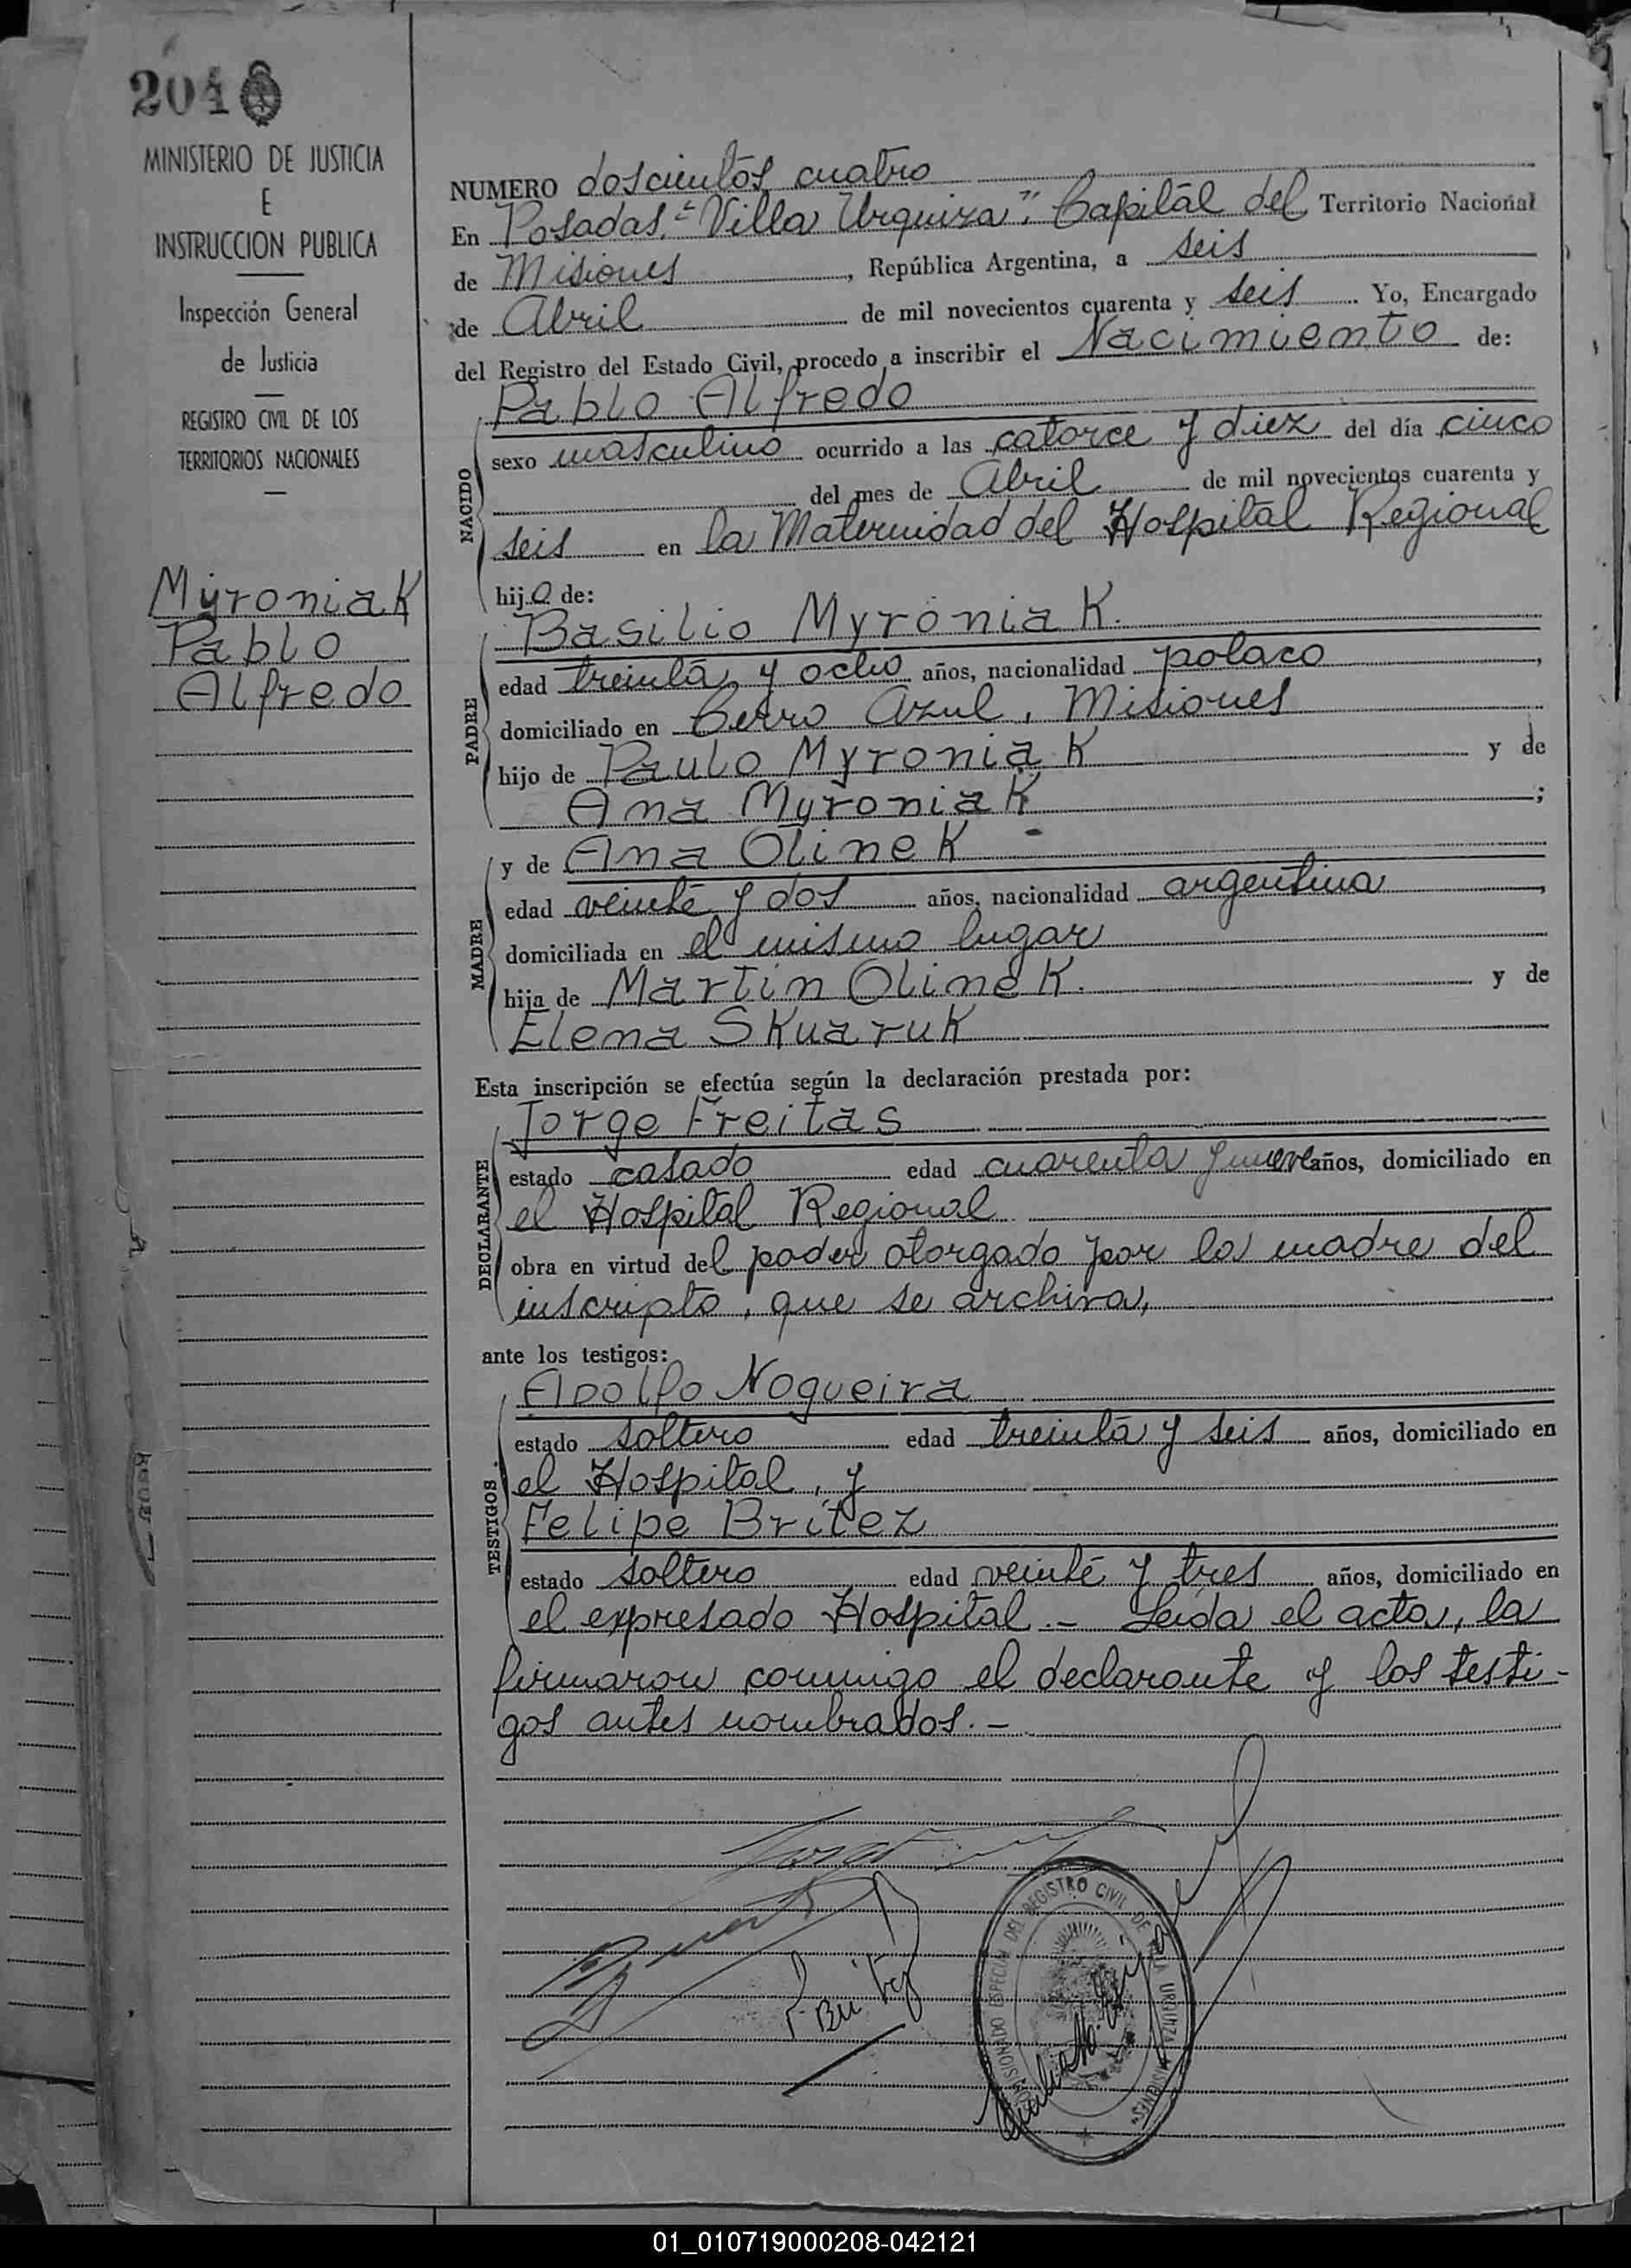 204
MINISTERIO DE JUSTICIA
E
INSTRUCCION PUBLICA
Inspección General
de Justicia
REGISTRO CIVIL DE LOS
TERRITORIOS NACIONALES
Myroniak
Pablo
Alfredo
NUMERO doscientos cuatro
En Posadas "Villa Urquiza", Capital del Territorio Nacional
de Misiones, República Argentina, a seis
de Abril de mil novecientos cuarenta y seis. Yo, Encargado
del Registro del Estado Civil, procedo a inscribir el Nacimiento de:
Pablo Alfredo
NACIDO
sexo masculino ocurrido a las catorce y diez del día cinco
del mes de Abril de mil novecientos cuarenta y
seis en la Maternidad del Hospital Regional
hijo de:
Basilio Myroniak.
PADRE
edad treinta y ocho años, nacionalidad polaco,
domiciliado en Cerro Azul, Misiones
hijo de Paulo Myroniak y de
Ana Myroniak;
y de Ana Olinek
MADRE
edad veinte y dos años, nacionalidad argentina,
domiciliada en el mismo lugar
hija de Martin Olinek. y de
Elena Skuaruk
Esta inscripción se efectúa según la declaración prestada por:
Jorge Freitas
DECLARANTE
estado casado edad cuarenta y nueve años, domiciliado en
el Hospital Regional
obra en virtud del poder otorgado por la madre del
inscripto, que se archiva,
ante los testigos:
Adolfo Nogueira
TESTIGOS
estado soltero edad treinta y seis años, domiciliado en
el Hospital, y
Felipe Britez
estado soltero edad veinte y tres años, domiciliado en
el expresado Hospital.- Leida el acta, la
firmaron conmigo el declarante y los testi-
gos antes nombrados.-
F. Britez
COMISIONADO ESPECIAL DEL REGISTRO CIVIL DE VILLA URQUIZA MISIONES
01_010719000208-042121